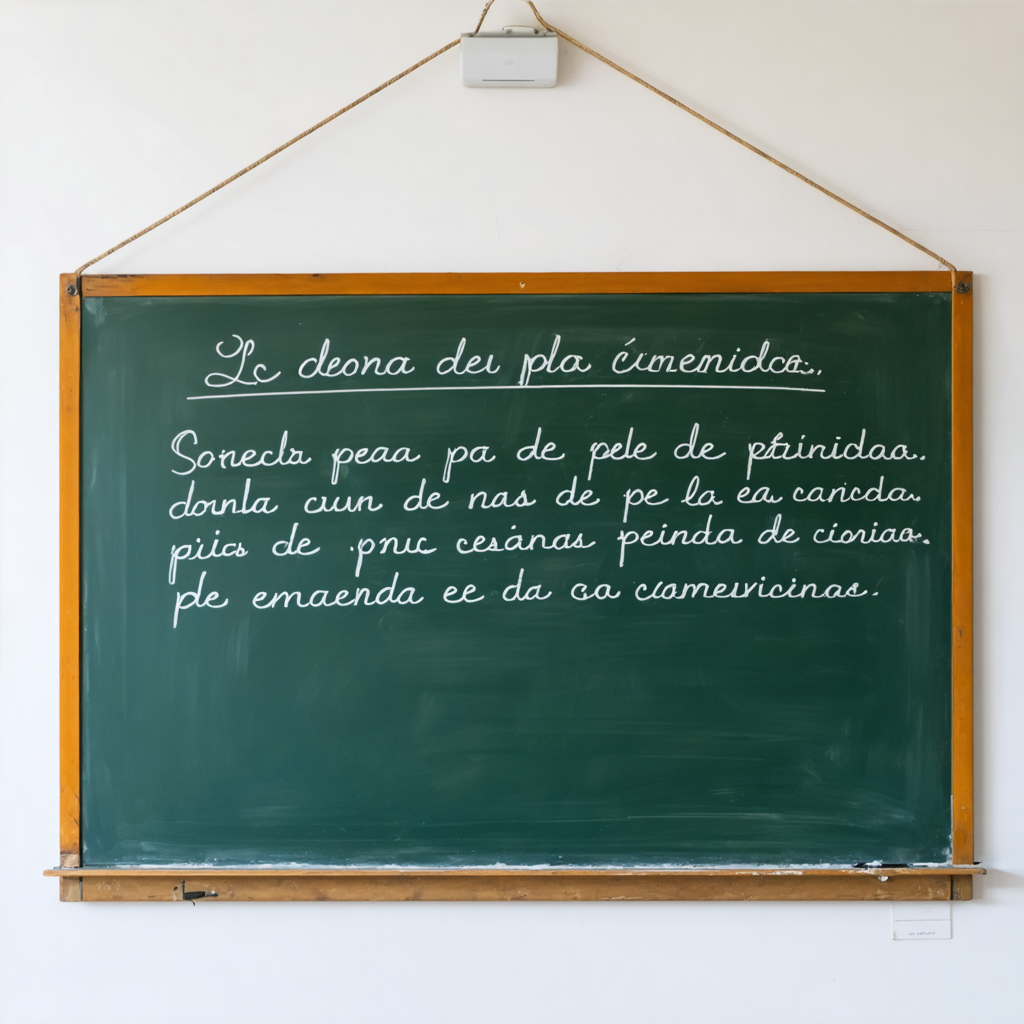 Lc deona deu pla cimenidca.
Sonecla peaa pa de pele de phinidaa.
dounla cuun de nas de pe la ea canicda.
piics de pnuc cesánas peinda de cioniaa.
ple emaenda ee da ca cuamewicinas.